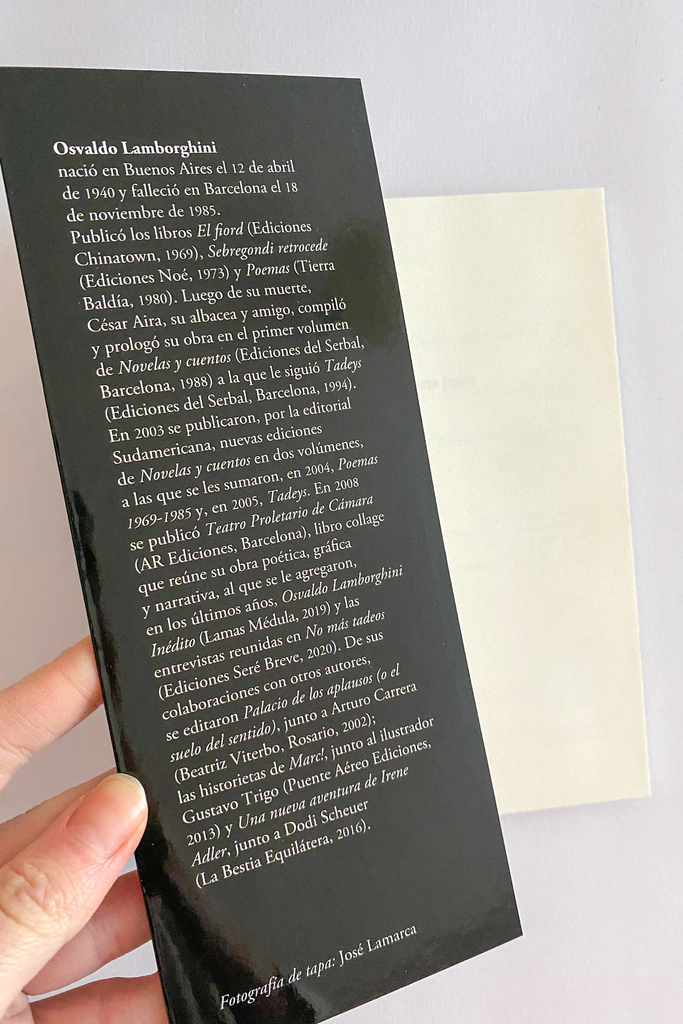 Osvaldo Lamborghini
nació en Buenos Aires el 12 de abril
de 1940 y falleció en Barcelona el 18
de noviembre de 1985.
Publicó los libros El fiord (Ediciones
Chinatown, 1969), Sebregondi retrocede
(Ediciones Noé, 1973) y Poemas (Tierra
Baldía, 1980). Luego de su muerte,
César Aira, su albacea y amigo, compiló
y prologó su obra en el primer volumen
de Novelas y cuentos (Ediciones del Serbal,
Barcelona, 1988) a la que le siguió Tadeys
(Ediciones del Serbal, Barcelona, 1994).
En 2003 se publicaron, por la editorial
Sudamericana, nuevas ediciones
de Novelas y cuentos en dos volúmenes,
a las que se les sumaron, en 2004, Poemas
1969-1985 y, en 2005, Tadeys. En 2008
se publicó Teatro Proletario de Cámara
(AR Ediciones, Barcelona), libro collage
que reúne su obra poética, gráfica
y narrativa, al que se le agregaron,
en los últimos años, Osvaldo Lamborghini
Inédito (Lamas Médula, 2019) y las
entrevistas reunidas en No más tadeos
(Ediciones Seré Breve, 2020). De sus
colaboraciones con otros autores,
se editaron Palacio de los aplausos (o el
suelo del sentido), junto a Arturo Carrera
(Beatriz Viterbo, Rosario, 2002);
las historietas de Marc!, junto al ilustrador
Gustavo Trigo (Puente Aéreo Ediciones,
2013) y Una nueva aventura de Irene
Adler, junto a Dodi Scheuer
(La Bestia Equilátera, 2016).
Fotografía de tapa: José Lamarca